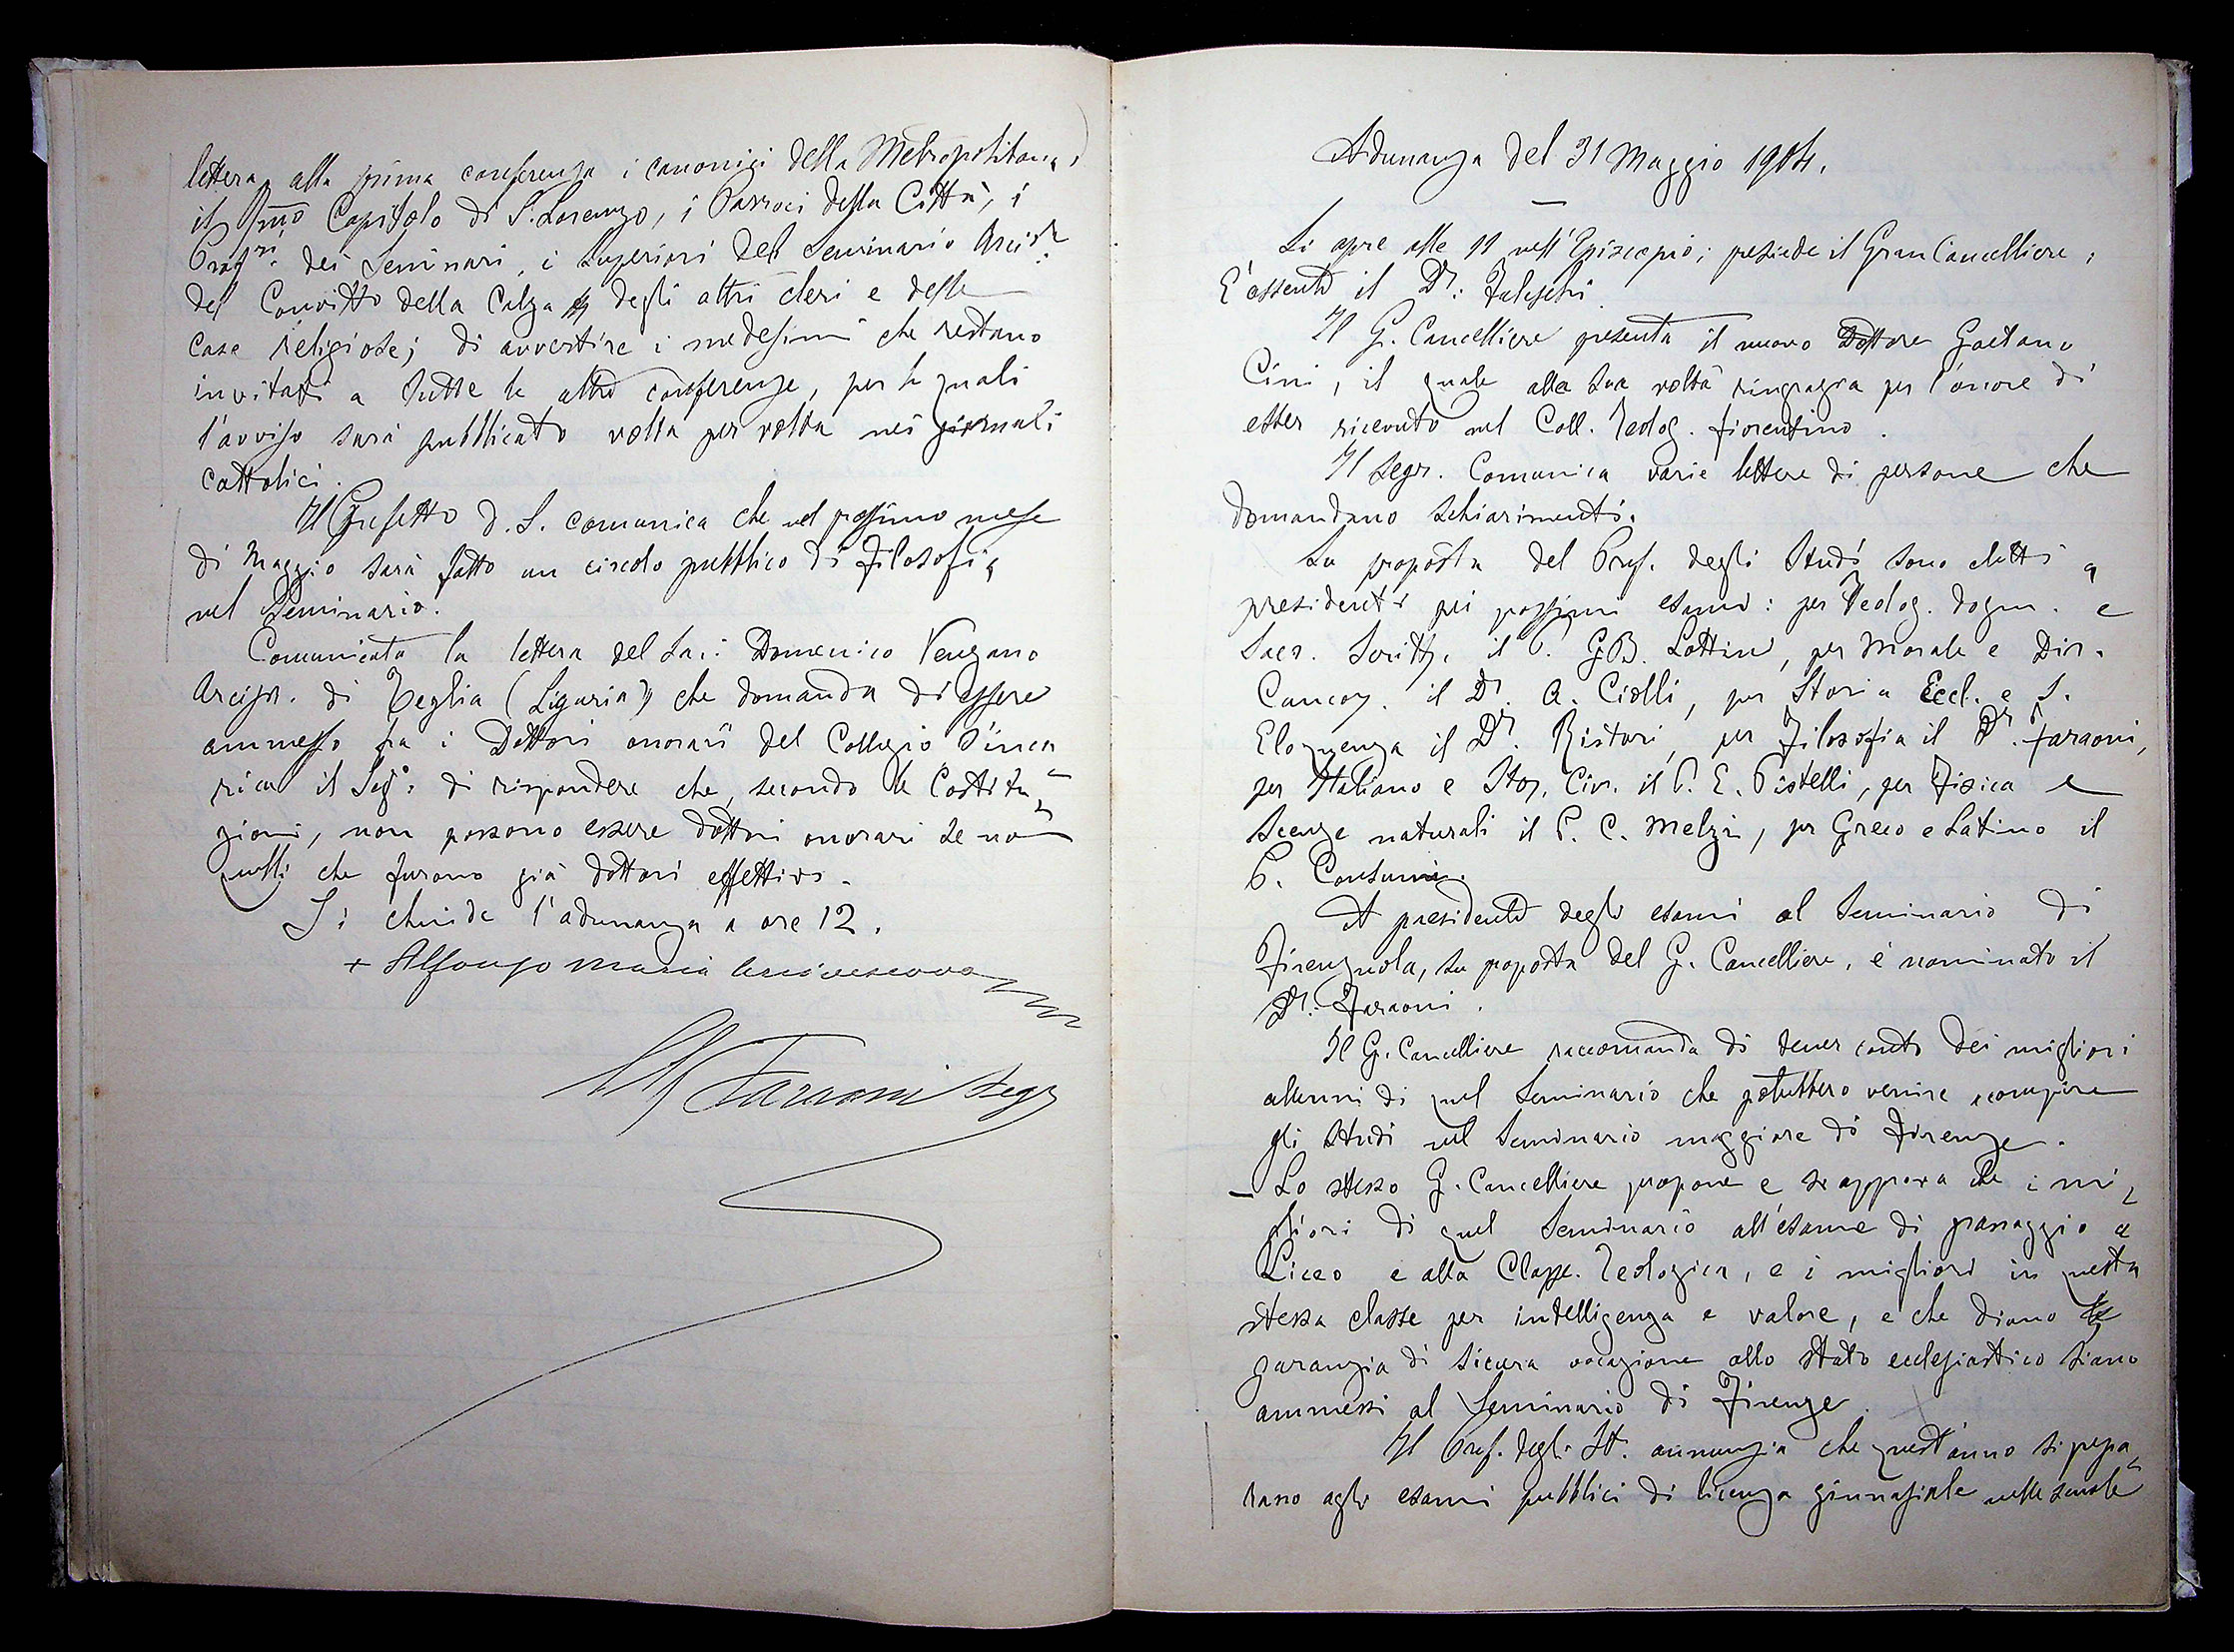 lettera, alla prima conferenza i canonici della Metropolitana,
il Rmo Capitolo di S. Lorenzo, i Parroci della Città, i
Profri. dei Seminari, i Superiori del Seminario Arcive.
del Convitto della Calza degli altri cleri e delle
case religiose; di avvertire i medesimi che restano
invitati a tutte le altre conferenze, per le quali
l'avviso sarà pubblicato volta per volta nei giornali
cattolici.
Il Prefetto d. S. comunica che nel prossimo mese
di Maggio sarà fatto un circolo pubblico di Filosofia
nel Seminario.
Comunicata la lettera del Sac. Domenico Vengano
Arcipr. di Teglia (Liguria) che domanda di essere
ammesso fra i Dottori onorari del Collegio s'inca
rica il Sego. di rispondere che, secondo le Costitu-
zioni, non possono essere dottori onorari se non
quelli che furono già dottori effettivi.
Si chiude l'adunanza a ore 12.
+ Alfonso Maria Arcivescovo
Faraoni Segr
Adunanza del 31 Maggio 1904.
Si apre alle 11 nell'Episcopio; presiede il Gran Cancelliere;
È assente il Dr.
Il G. Cancelliere presenta il nuovo Dottore Gaetano
Cini, il quale alla sua volta ringrazia per l'onore di
esser ricevuto nel Coll. Teolog. fiorentino.
Il Segr. Comunica varie lettere di persone che
domandano schiarimenti.
Su proposta del Pref. degli Studi sono eletti a
presidenti pei prossimi esami: per Teolog. dogm. e
Sacr. Scritt. il P. G.B. Lottini, per Morale e Dir.
Canon. il Dr. A. Ciolli, per Storia Eccl. e S.
Eloquenza il Dr. Ristori, per Filosofia il Dr. Faraoni,
per Italiano e Stor. Civ. il P. E. Pistelli, per Fisica e
Scenze naturali il P. C. Melzi, per Greco e Latino il
P. Consumi.
A presidente degli esami al Seminario di
Firenzuola, su proposta del G. Cancelliere, è nominato il
Dr. Faraoni.
Il G. Cancelliere raccomanda di tener conto dei migliori
alunni di quel Seminario che potessero venire a compire
gli studi nel Seminario maggiore di Firenze.
- Lo stesso G. Cancelliere propone e si approva che i mi-
gliori di quel Seminario all'esame di passaggio a
Liceo e alla Classe Teologica, e i migliori in questa
stessa classe per intelligenza e valore, e che diano
garanzia di sicura vocazione allo stato ecclesiastico siano
ammessi al Seminario di Firenze.
Il Pref. degli St. annunzia che quest'anno si prepa-
rano agli esami pubblici di licenza ginnasiale nelle scuole